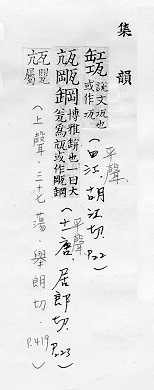 集韻
缸瓨 說文瓨也或作瓨 平聲(四江.胡江切.P.22)
鋼 博雅缾也一曰大瓮爲 或作 鋼 平聲(十一唐.居郎切.P.23)
甖屬(上聲.三十七蕩.舉朗切.P.419)